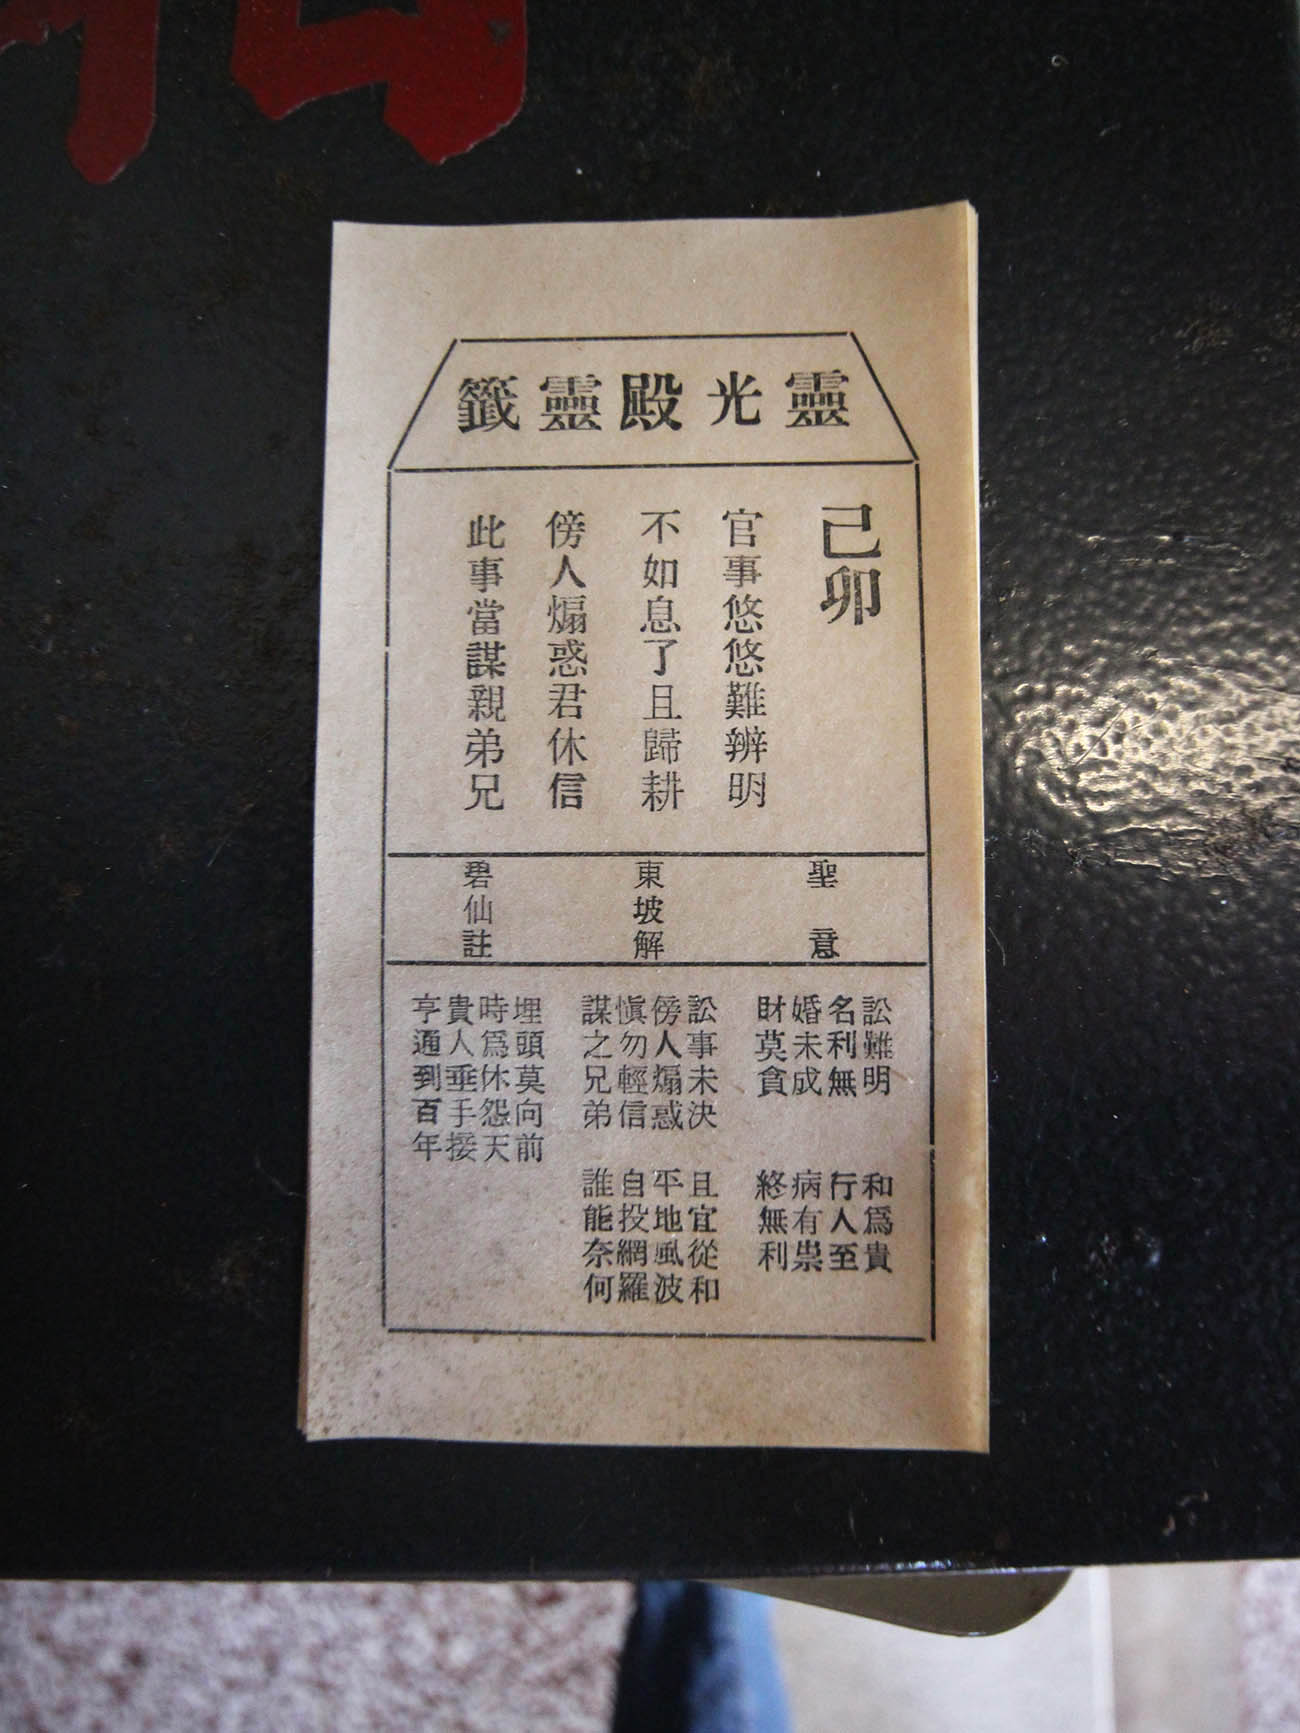 靈光殿靈籤
己卯
官事悠悠難辨明
不如息了且歸耕
傍人煽惑君休信
此事當謀親弟兄
聖意
訟難明　和為貴
名利無　行人至
婚未成　病有祟
財莫貪　終無利
東坡解
訟事未決　且宜從和
傍人煽惑　平地風波
慎勿輕信　自投網羅
謀之兄弟　誰能奈何
碧仙註
埋頭莫向前
時為休怨天
貴人垂手接
亨通到百年